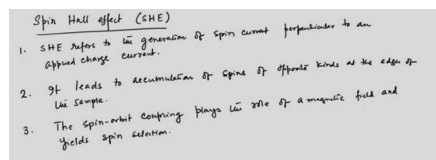 Spin Hall effect (SHE)
1. SHE refers to the generation of spin current perpendicular to an
applied charge current.
2. It leads to accumulation of spins of opposite kinds at the edges of
the sample.
3. The spin-orbit coupling plays the role of a magnetic field and
yields spin selection.